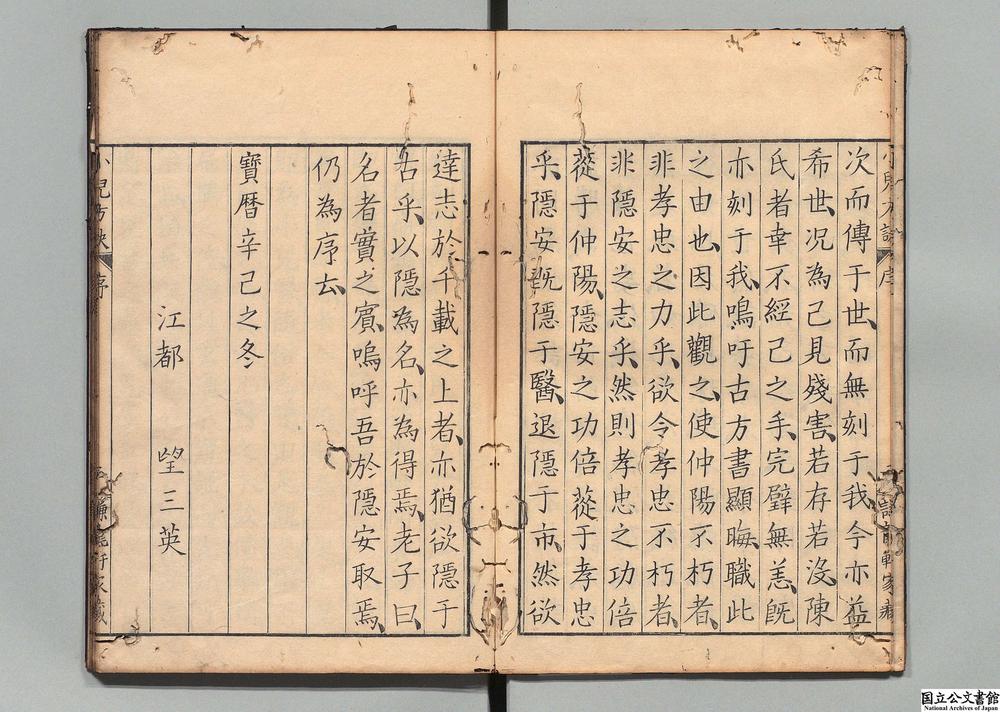 次而傳于世、而無刻于我、今亦益
希世、况為己見殘害、若存若沒、陳
氏者幸不經己之手、完璧無恙、既
亦刻于我、鳴吁古方書顯晦、職此
之由也、因此觀之、使仲陽不朽者、
非孝忠之力乎、欲令孝忠不朽者、
非隱安之志乎、然則孝忠之功倍
蓰于仲陽、隱安之功倍蓰于孝忠
乎、隱安既隱于醫、退隱于市、然欲
達志於千載之上者、亦猶欲隱于
右乎、以隱為名、亦為得焉、老子曰、
名者實之賓、嗚呼吾於隱安取焉、
仍為序去、
寶暦辛己之冬
江都 望三英
小兒方訣 序
家藏
国立公文書館
National Archives of Japan